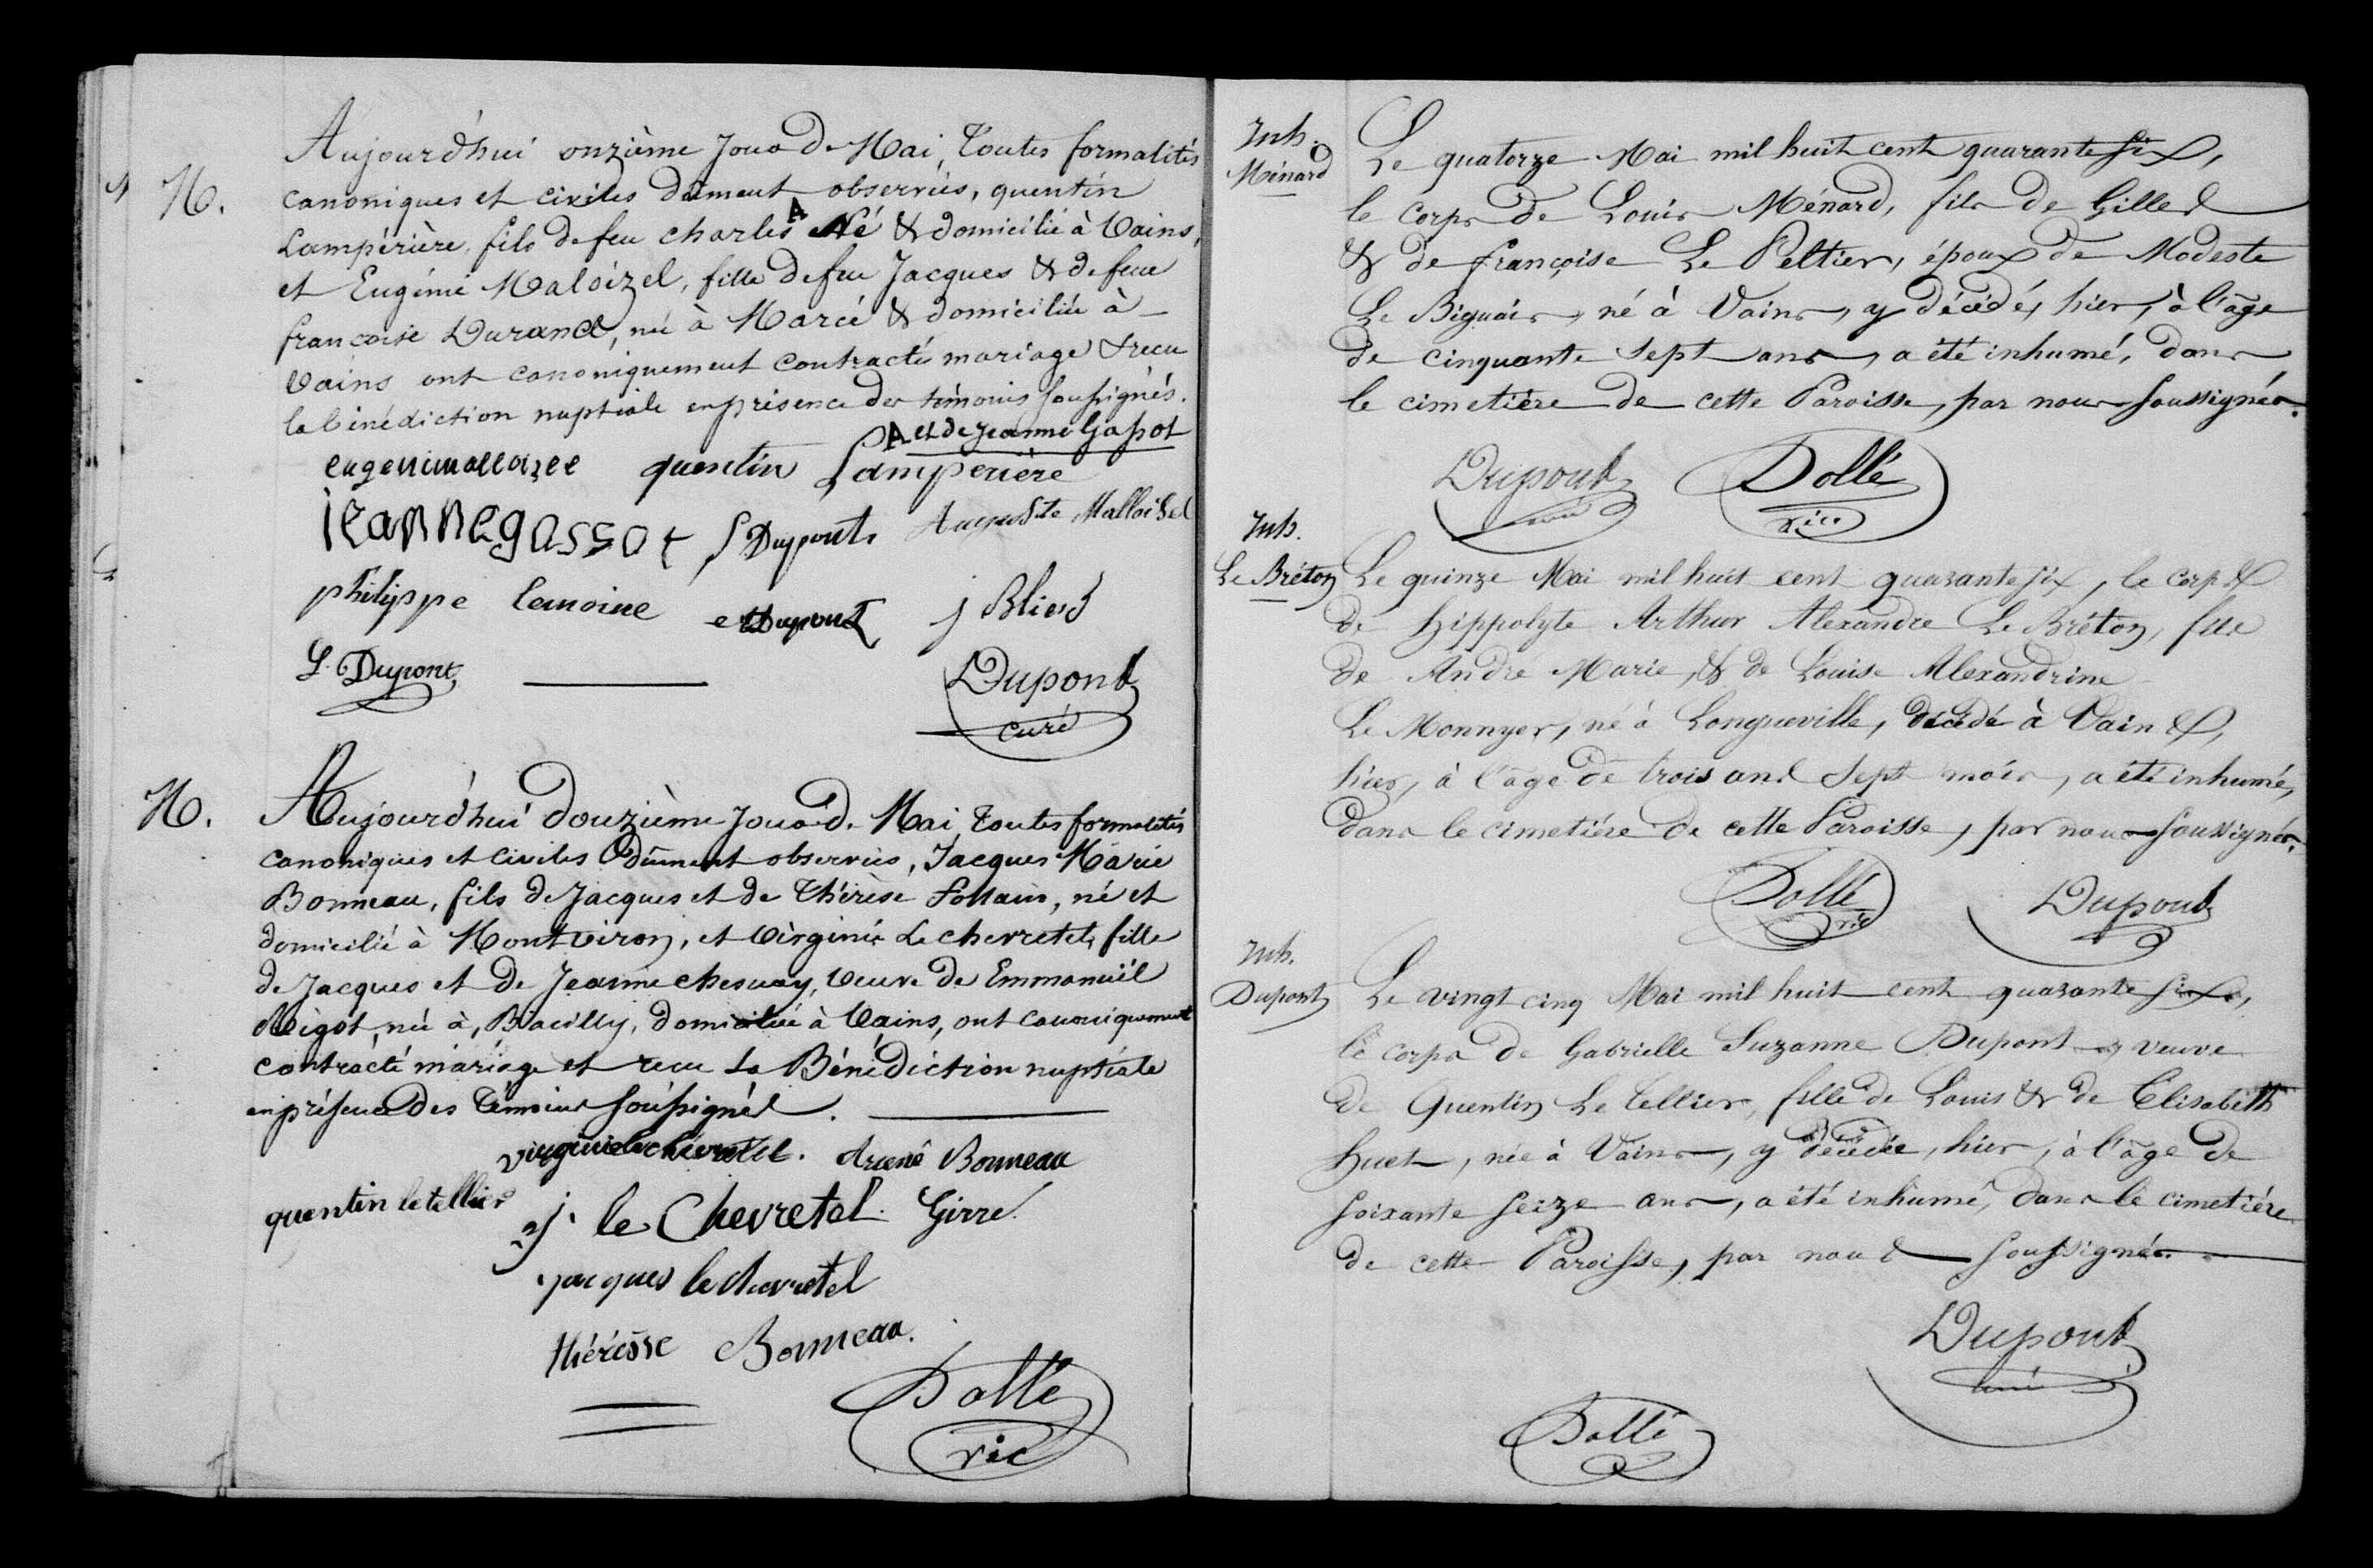 M.
Aujourd'hui onzième jour de Mai, toutes formalités
canoniques et civiles dûment observées, quentin
Lampérière, fils de feu charles A Né & domicilié à Vains,
et Eugénie Maloizel, fille de feu Jacques & de feue
françoise Durand, née à Marcé & domiciliée à
Vains ont canoniquement contracté mariage & recu
la bénédiction nuptiale en présence des témoins soussignés.
A et de jeanne Gapot
eugenimalloizel quentin Lamperière
jeannegassot f Dupont Auguste Malloisel
philippe lemoine Dupont j Blier
L. Dupont Dupont
curé
M.
Aujourd'hui douzième jour de Mai, toutes formalités
canoniques et civiles dûment observées, Jacques Marie
Bonneau, fils de Jacques et de Thérèse follain, né et
domicilié à Montviron, et Virginie Le chevretel, fille
de Jacques et de Jeanne chesnay, Veuve de Emmanuël
Rigot, née à, Bacilly, domiciliée à Vains, ont canoniquement
contracté mariage et recu la Bénédiction nuptiale
en présence des témoins soussignés.
virginie le chevretel. Bonneau
quentin letellier j. le Chevretel. Girre.
jacques le chevretel
thérèsse Bonneau.
Dollé
vic
Inh.
Ménard
Le quatorze Mai mil huit cent quarante six,
le corps de Louis Ménard, fils de Gilles
& de françoise Le Peltier, époux de Modeste
Le Biguais, né à Vains, y décédé, hier, à l'âge
de cinquante sept ans, a été inhumé, dans
le cimetière de cette Paroisse, par nous soussignés.
Dupont Dollé
curé vic
Inh.
Le Bréton
Le quinze Mai mil huit cent quarante six, le corps
de Hippolyte Arthur Alexandre Le Bréton, fils
de André Marie, & de Louise Alexandrine
Le Monnyer, né à Longueville, décédé à Vains,
hier, à l'âge de trois ans sept mois, a été inhumé,
dans le cimetière de cette Paroisse, par nous soussignés.
Dollé Dupont
vic
Inh.
Dupont
Le vingt cinq Mai mil huit cent quarante six,
le corps de Gabrielle Suzanne Dupont, veuve
de Quentin Le Tellier, fille de Louis & de Elisabeth
Huet, née à Vains, y décédée, hier, à l'âge de
soixante seize ans, a été inhumé, dans le cimetière
de cette Paroisse, par nous soussignés.
Dupont
curé
Dollé